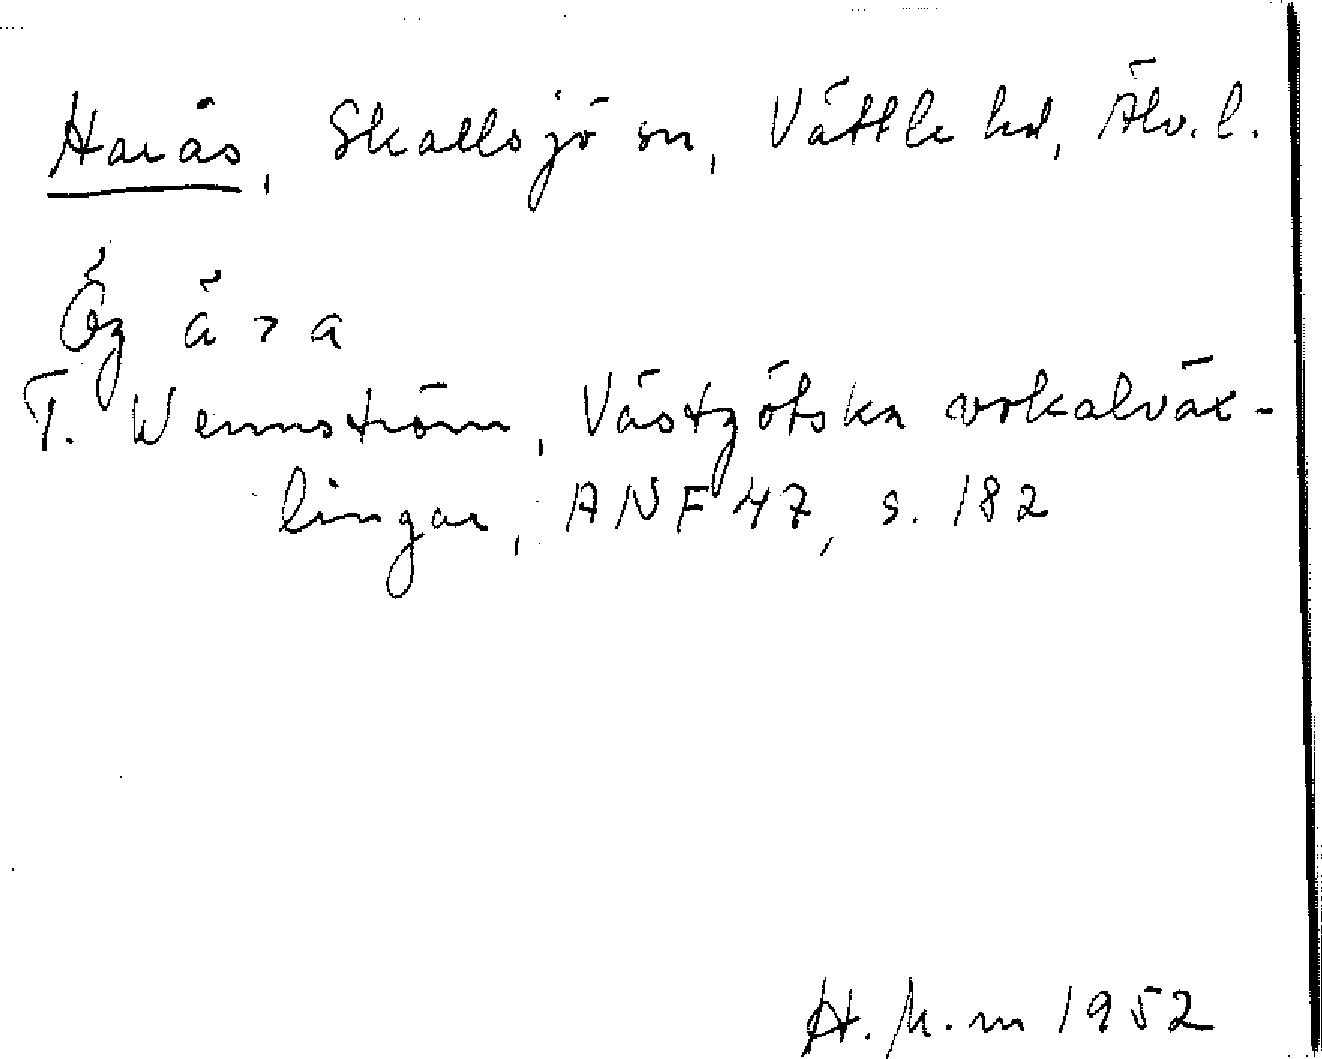 Harås, Skallsjö sn, Vättle hd, Älv. l.
Övg ä > a
T. Wennström, Västgötska vokalväx-
lingar, ANF 47, s. 182
H. K-m 1952